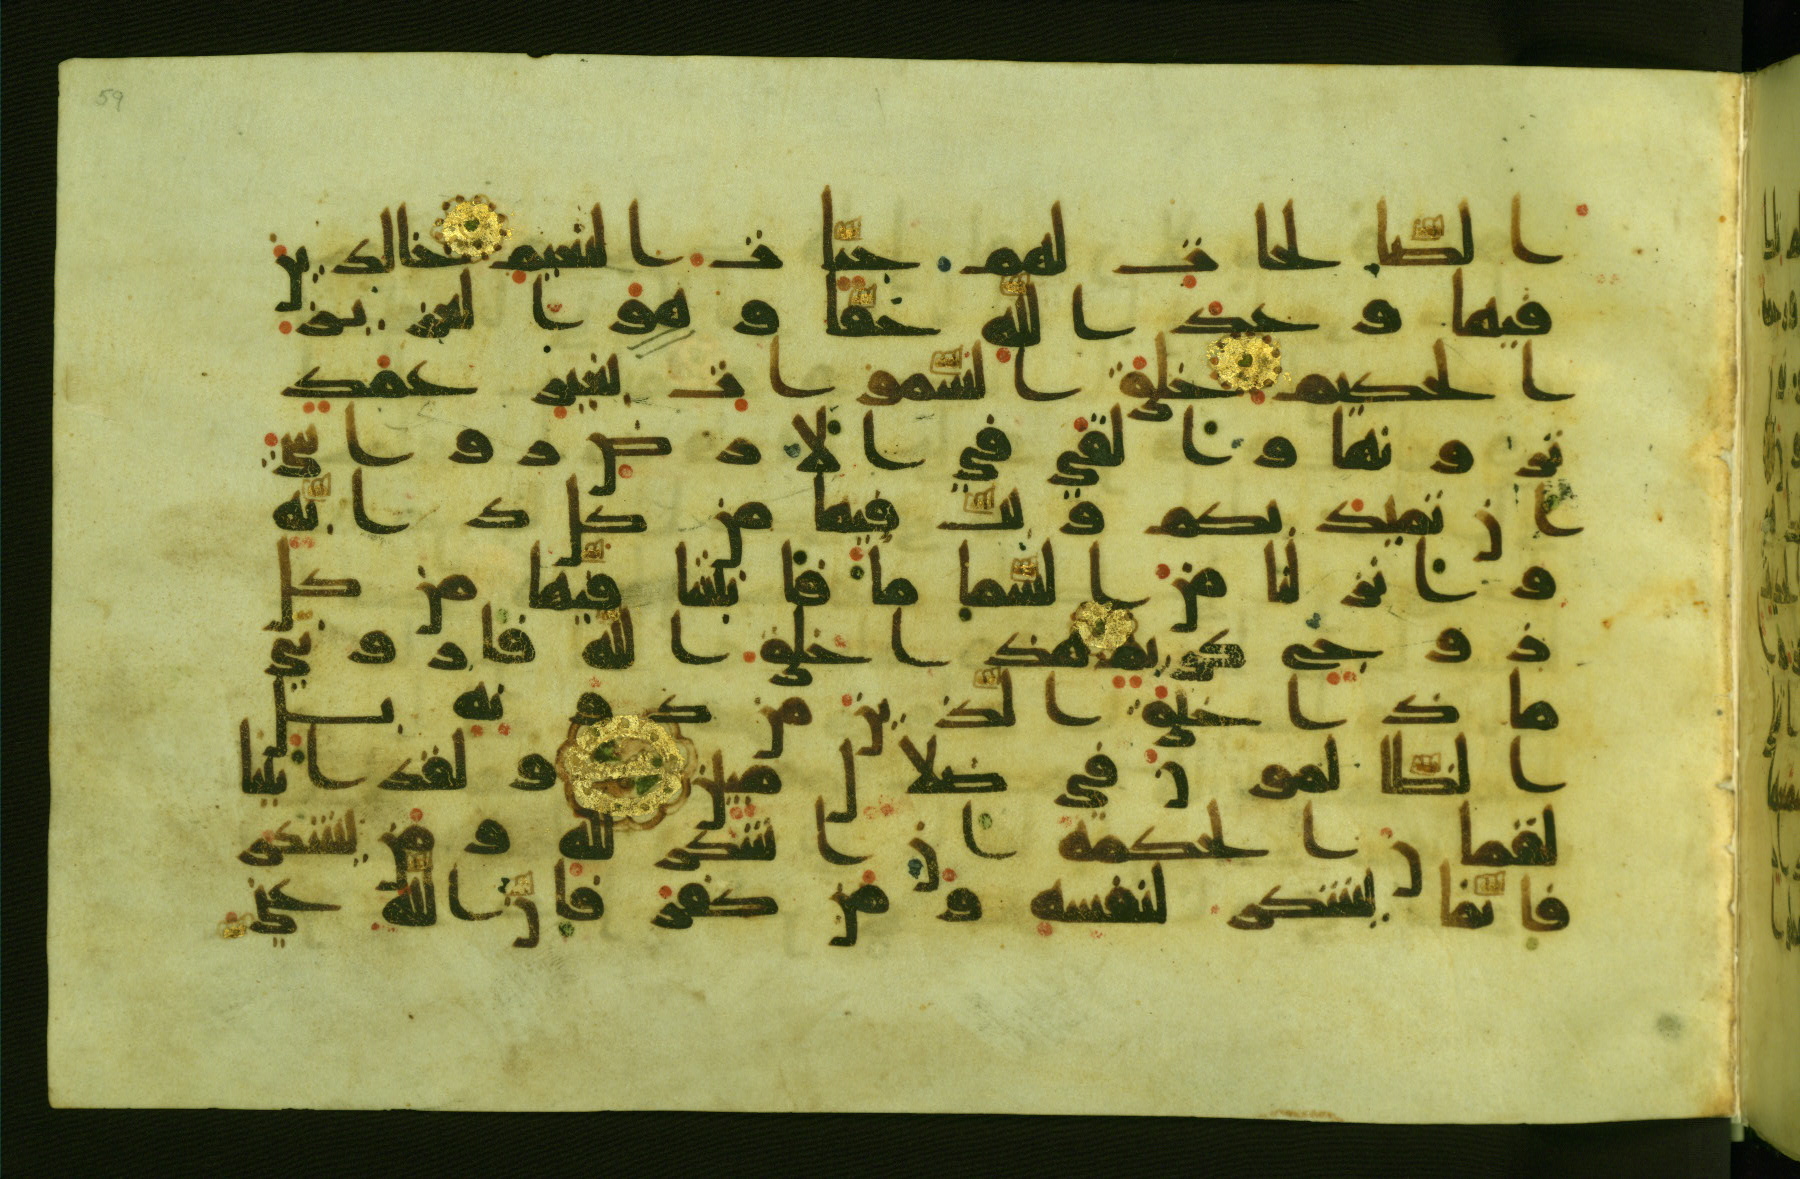 59
ا لصلحا ت لهم جنا ت ا لنعيم خالد ين
فيها و عد ا لله حقا و هو ا لعز يز
ا لحكيم خلق ا لسمو ا ت بغير عمد
تر و نها و ا لقى في ا لا ر ض ر و ا سي
ا ن تميد بكم و بث فيها من كل د ا بة
و ا نز لنا من ا لسما ما فا نبتنا فيها من كل
ز و ج كر يم هذ ا خلق ا لله فا ر و ني
ما ذ ا خلق ا لذ ين من د و نه بل
ا لظا لمو ن في ضلا ل مبين و لقد ا تينا
لقما ن ا لحكمة ا ن ا شكر لله و من يشكر
فا نما يشكر لنفسه و من كفر فا ن ا لله غني